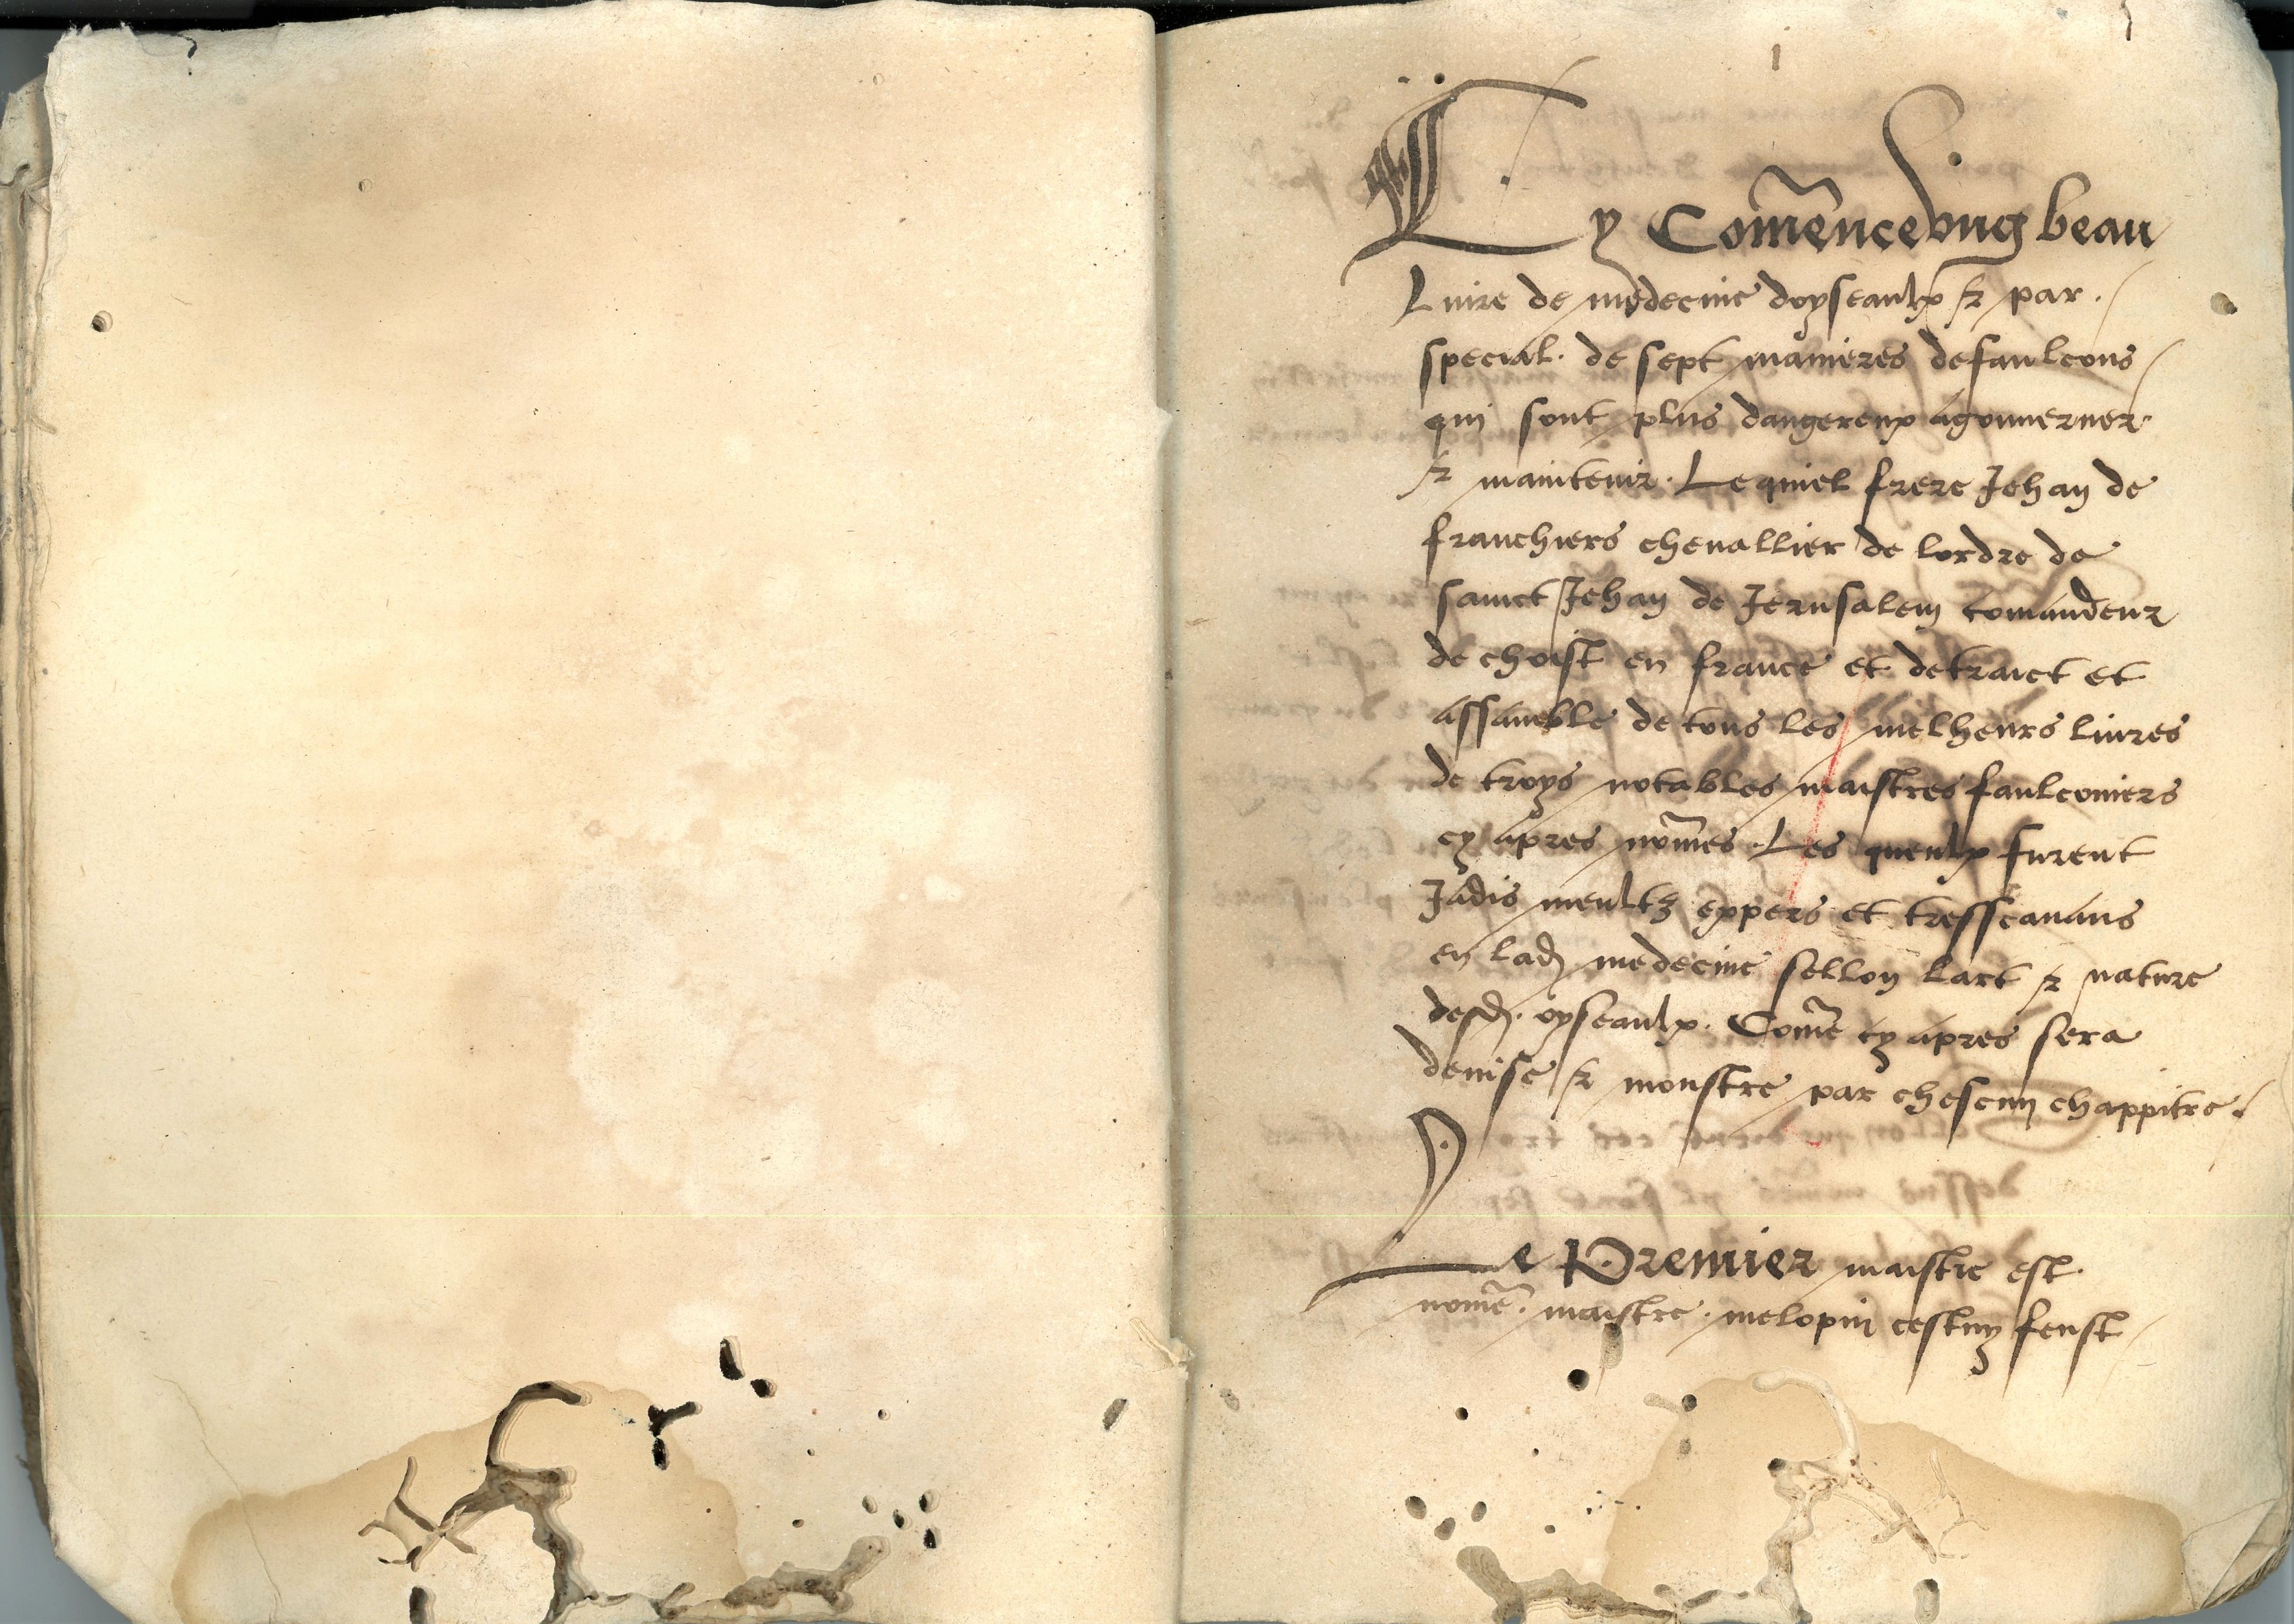 1
Cy Com̃ence vng beau
Liure de medecine doyseaulx & par
special. de sept manieres de faulcons
qui sont plus dangereux a gouuerner.
& maintenir. Lequiel frere Jehan de
franchiers cheuallier de lordre de
sainct Jehan de Jerusalem comandeur
de choisi en france et detraict et
assamble de tous les melheurs liures
de troys notables maistres faulconiers
cy apres nom̃es. Les queulx furent
Jadis meultz expers et tresscauans
en lad medecine sellon lart & nature
desd. oyseaulx. Com̃e cy apres sera
deuise & monstre par chescun chappitre.
Le Premier maistre est
nom̃e. maistre. melopin cestuy feust